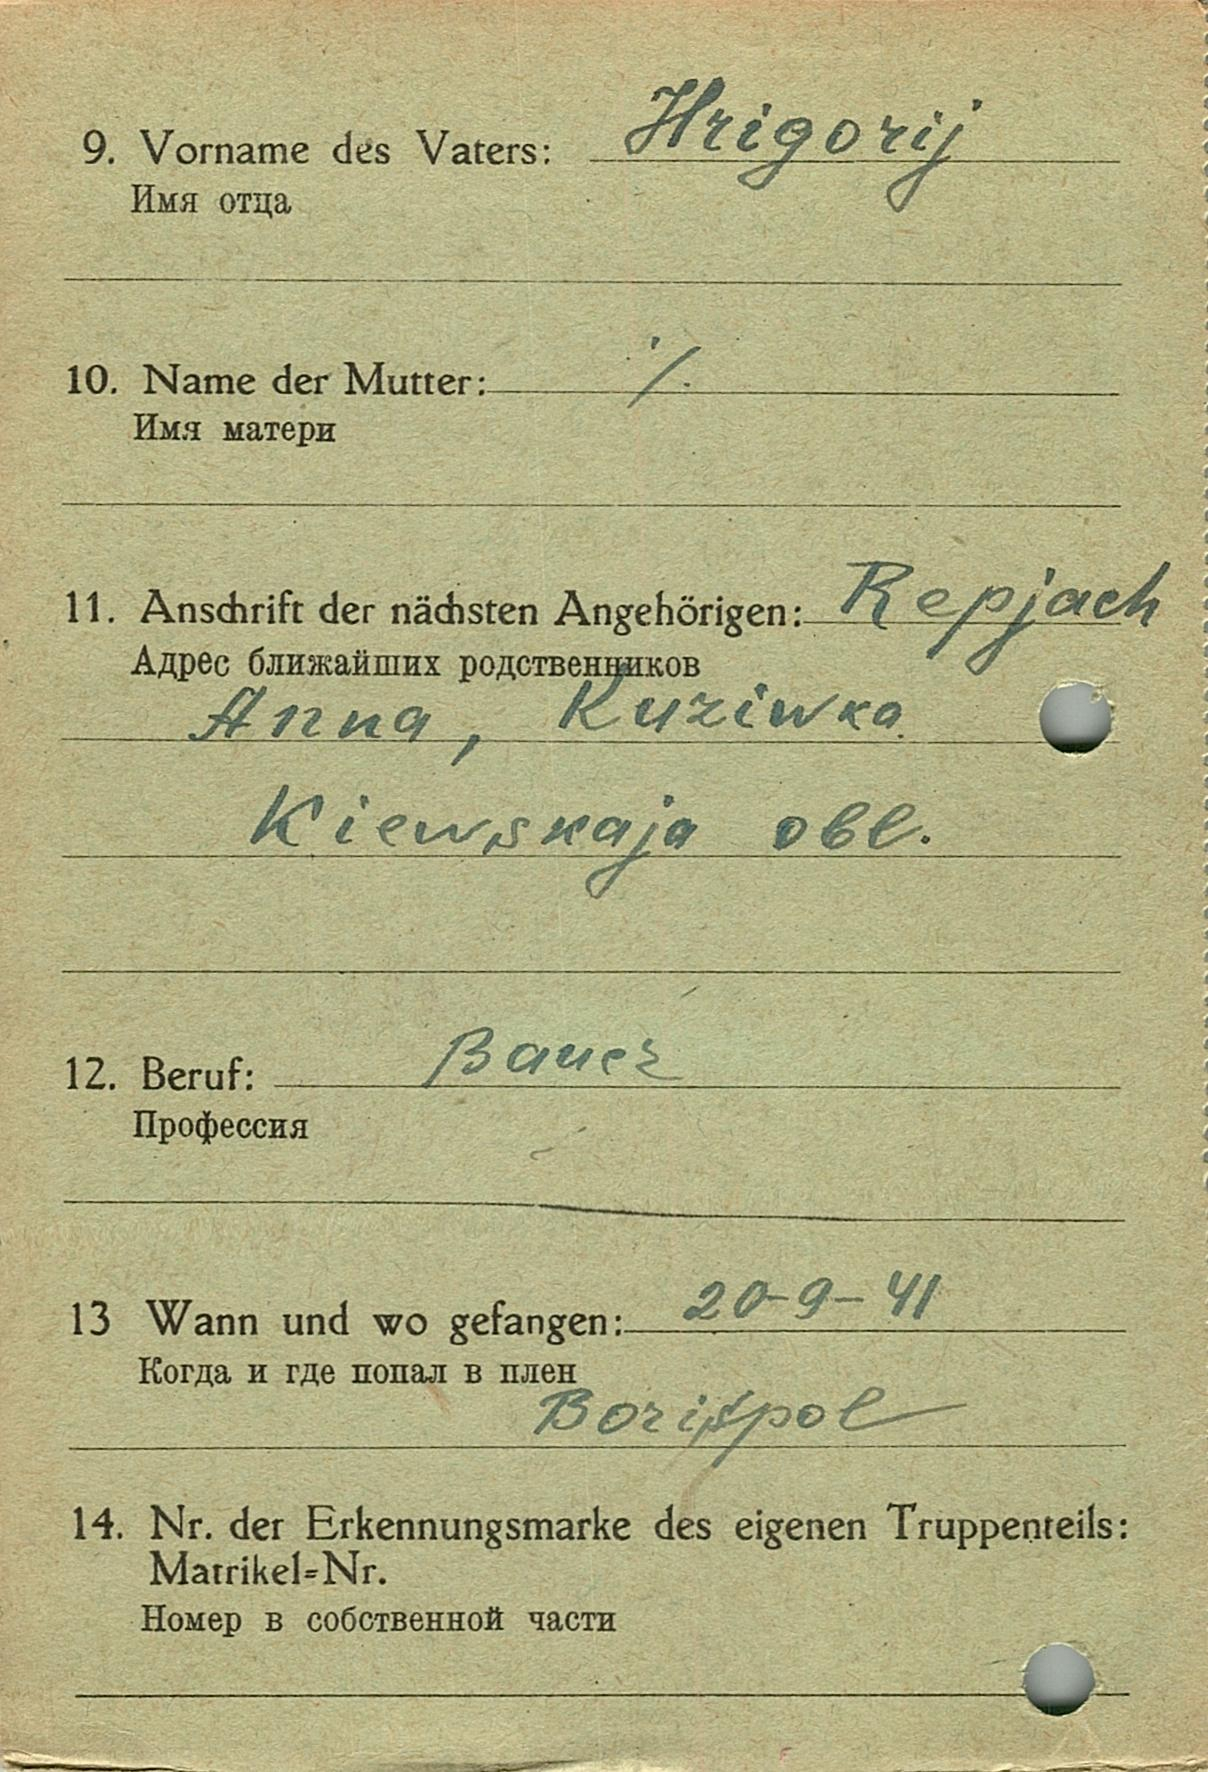 9. Vorname des Vaters: Hrigorij
Имя отца
10. Name der Mutter: ⁒
Имя матери
11. Anschrift der nächsten Angehörigen: Repjach
Адрес ближайших родственников
Anna, Kuziwka
Kiewskaja obl.
12. Beruf: Bauer
Профессия
13 Wann und wo gefangen: 20-9-41
Когда и где попал в плен
Borispol
14. Nr. der Erkennungsmarke des eigenen Truppenteils:
Matrikel=Nr.
Номер в собственной части